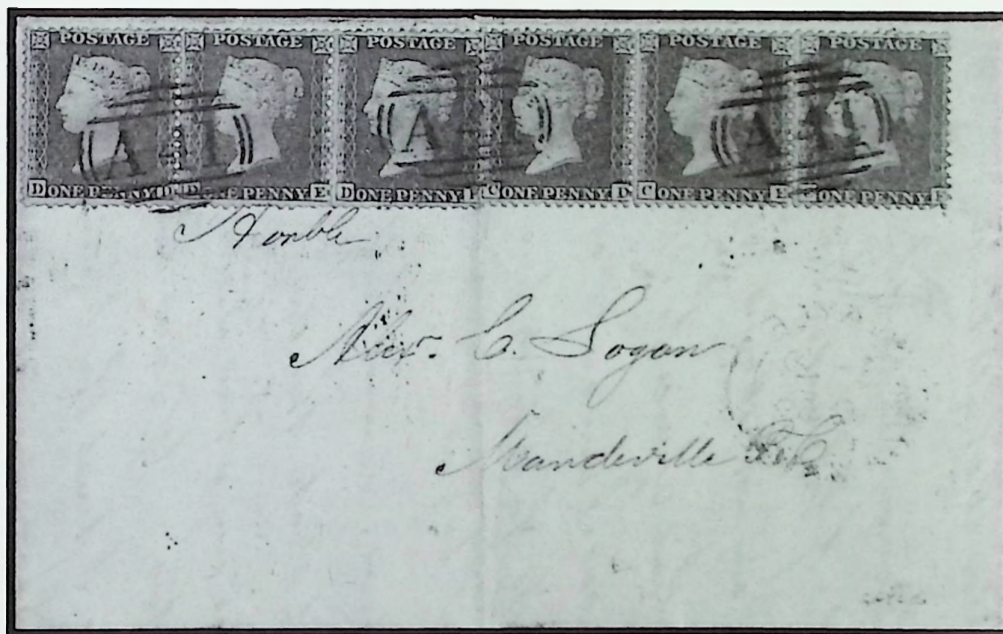 POSTAGE POSTAGE POSTAGE POSTAGE POSTAGE POSTAGE
A 41 A 41 A 41
D ONE PENNY D D ONE PENNY E D ONE PENNY F C ONE PENNY D C ONE PENNY E ONE PENNY F
Honble
Alex. C. Logan
Mandeville